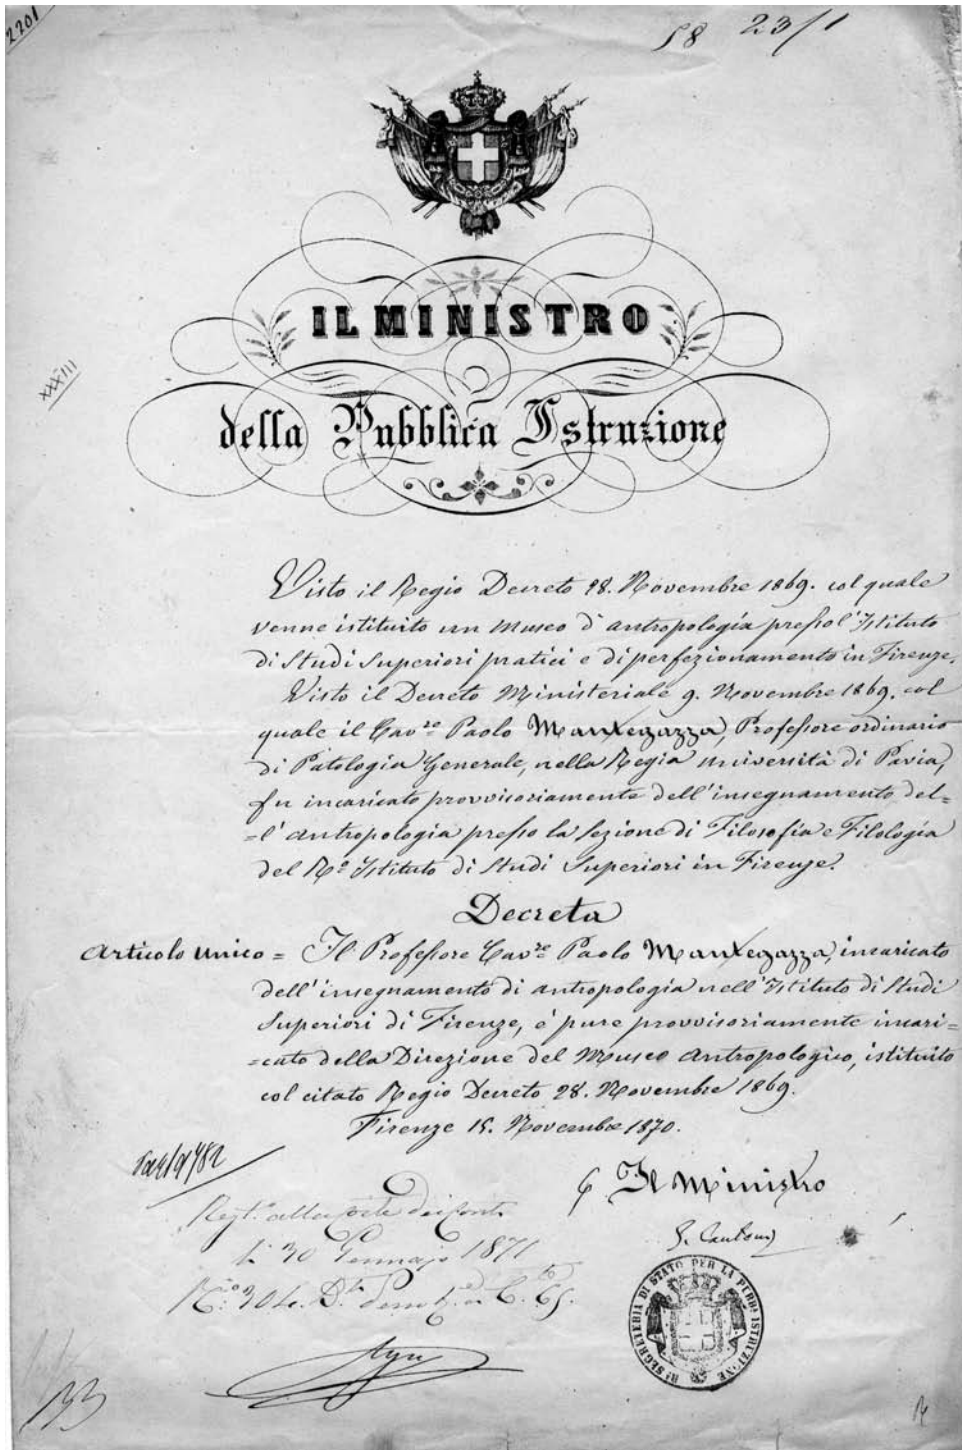 2201
58 23/1
IL MINISTRO
XXXIII
della Pubblica Istruzione
Visto il Regio Decreto 28. Novembre 1869. col quale
venne istituito un Museo d'antropologia presso l'Istituto
di Studi Superiori pratici e di perfezionamento in Firenze,
Visto il Decreto Ministeriale 9. Novembre 1869. col
quale il Cav.re Paolo Mantegazza, Professore ordinario
di Patologia Generale, nella Regia Università di Pavia,
fu incaricato provvisoriamente dell'insegnamento del=
=l'antropologia presso la Sezione di Filosofia e Filologia
del R.o Istituto di Studi Superiori in Firenze.
Decreta
Articolo Unico = Il Professore Cav.re Paolo Mantegazza, incaricato
dell'insegnamento di antropologia nell'Istituto di Studi
Superiori di Firenze, è pure provvisoriamente incari=
=cato della Direzione del Museo Antropologico, istituito
col citato Regio Decreto 28. Novembre 1869.
Firenze 15. Novembre 1870.
Il Ministro
Regt.o alla Corte dei Conti
li 30 Gennajo 1871
R.A SEGRETERIA DI STATO PER LA PUBB.A ISTRUZIONE